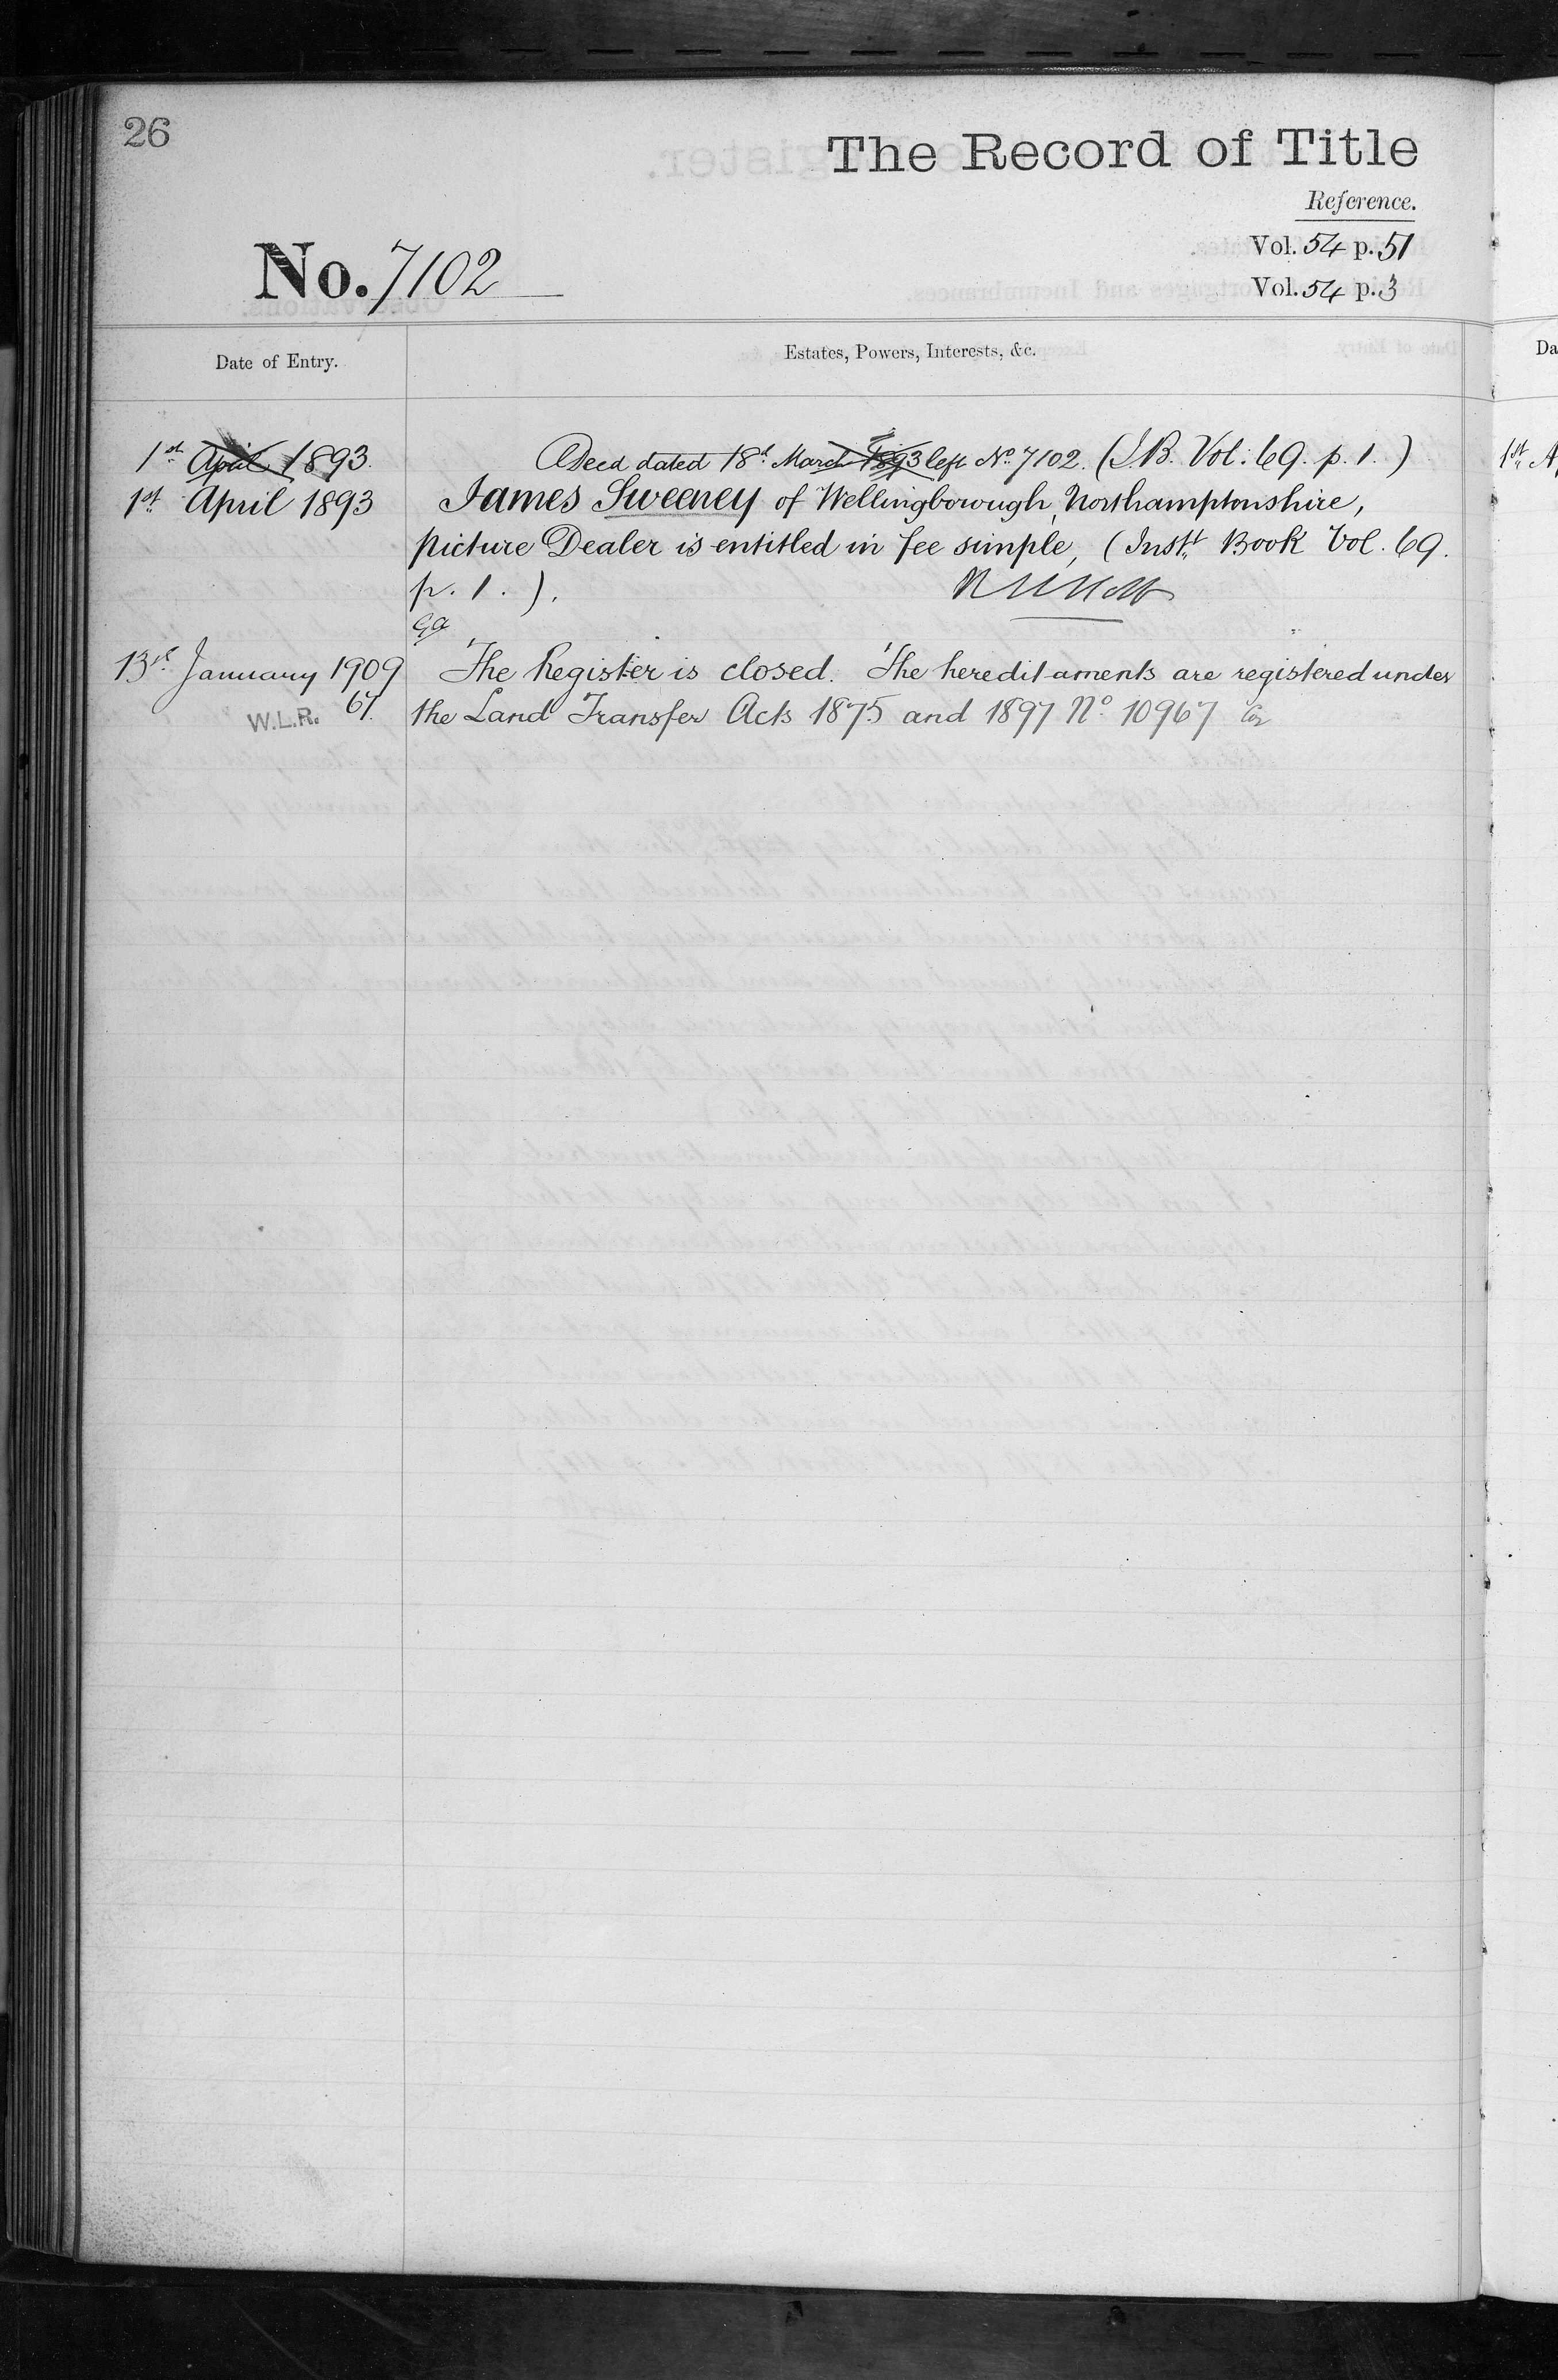 26
The Record of Title
Reference.
Vol. 54 p. 51
No. 7102
Vol. 54 p. 3
Date of Entry.
Estates, Powers, Interests, &c.
Da
1st April 1893.
Deed dated 18th March 1893 left No. 7102. (I.B. Vol: 69. p. 1.)
1st A
1st April 1893
James Sweeney of Wellingborough, Northamptonshire,
picture Dealer is entitled in fee simple, (Instt Book Vol. 69.
p. 1. ).
13th January 1909
The Register is closed. The hereditaments are registered under
W.L.R. 67.
the Land Transfer Acts 1875 and 1897 No 10967